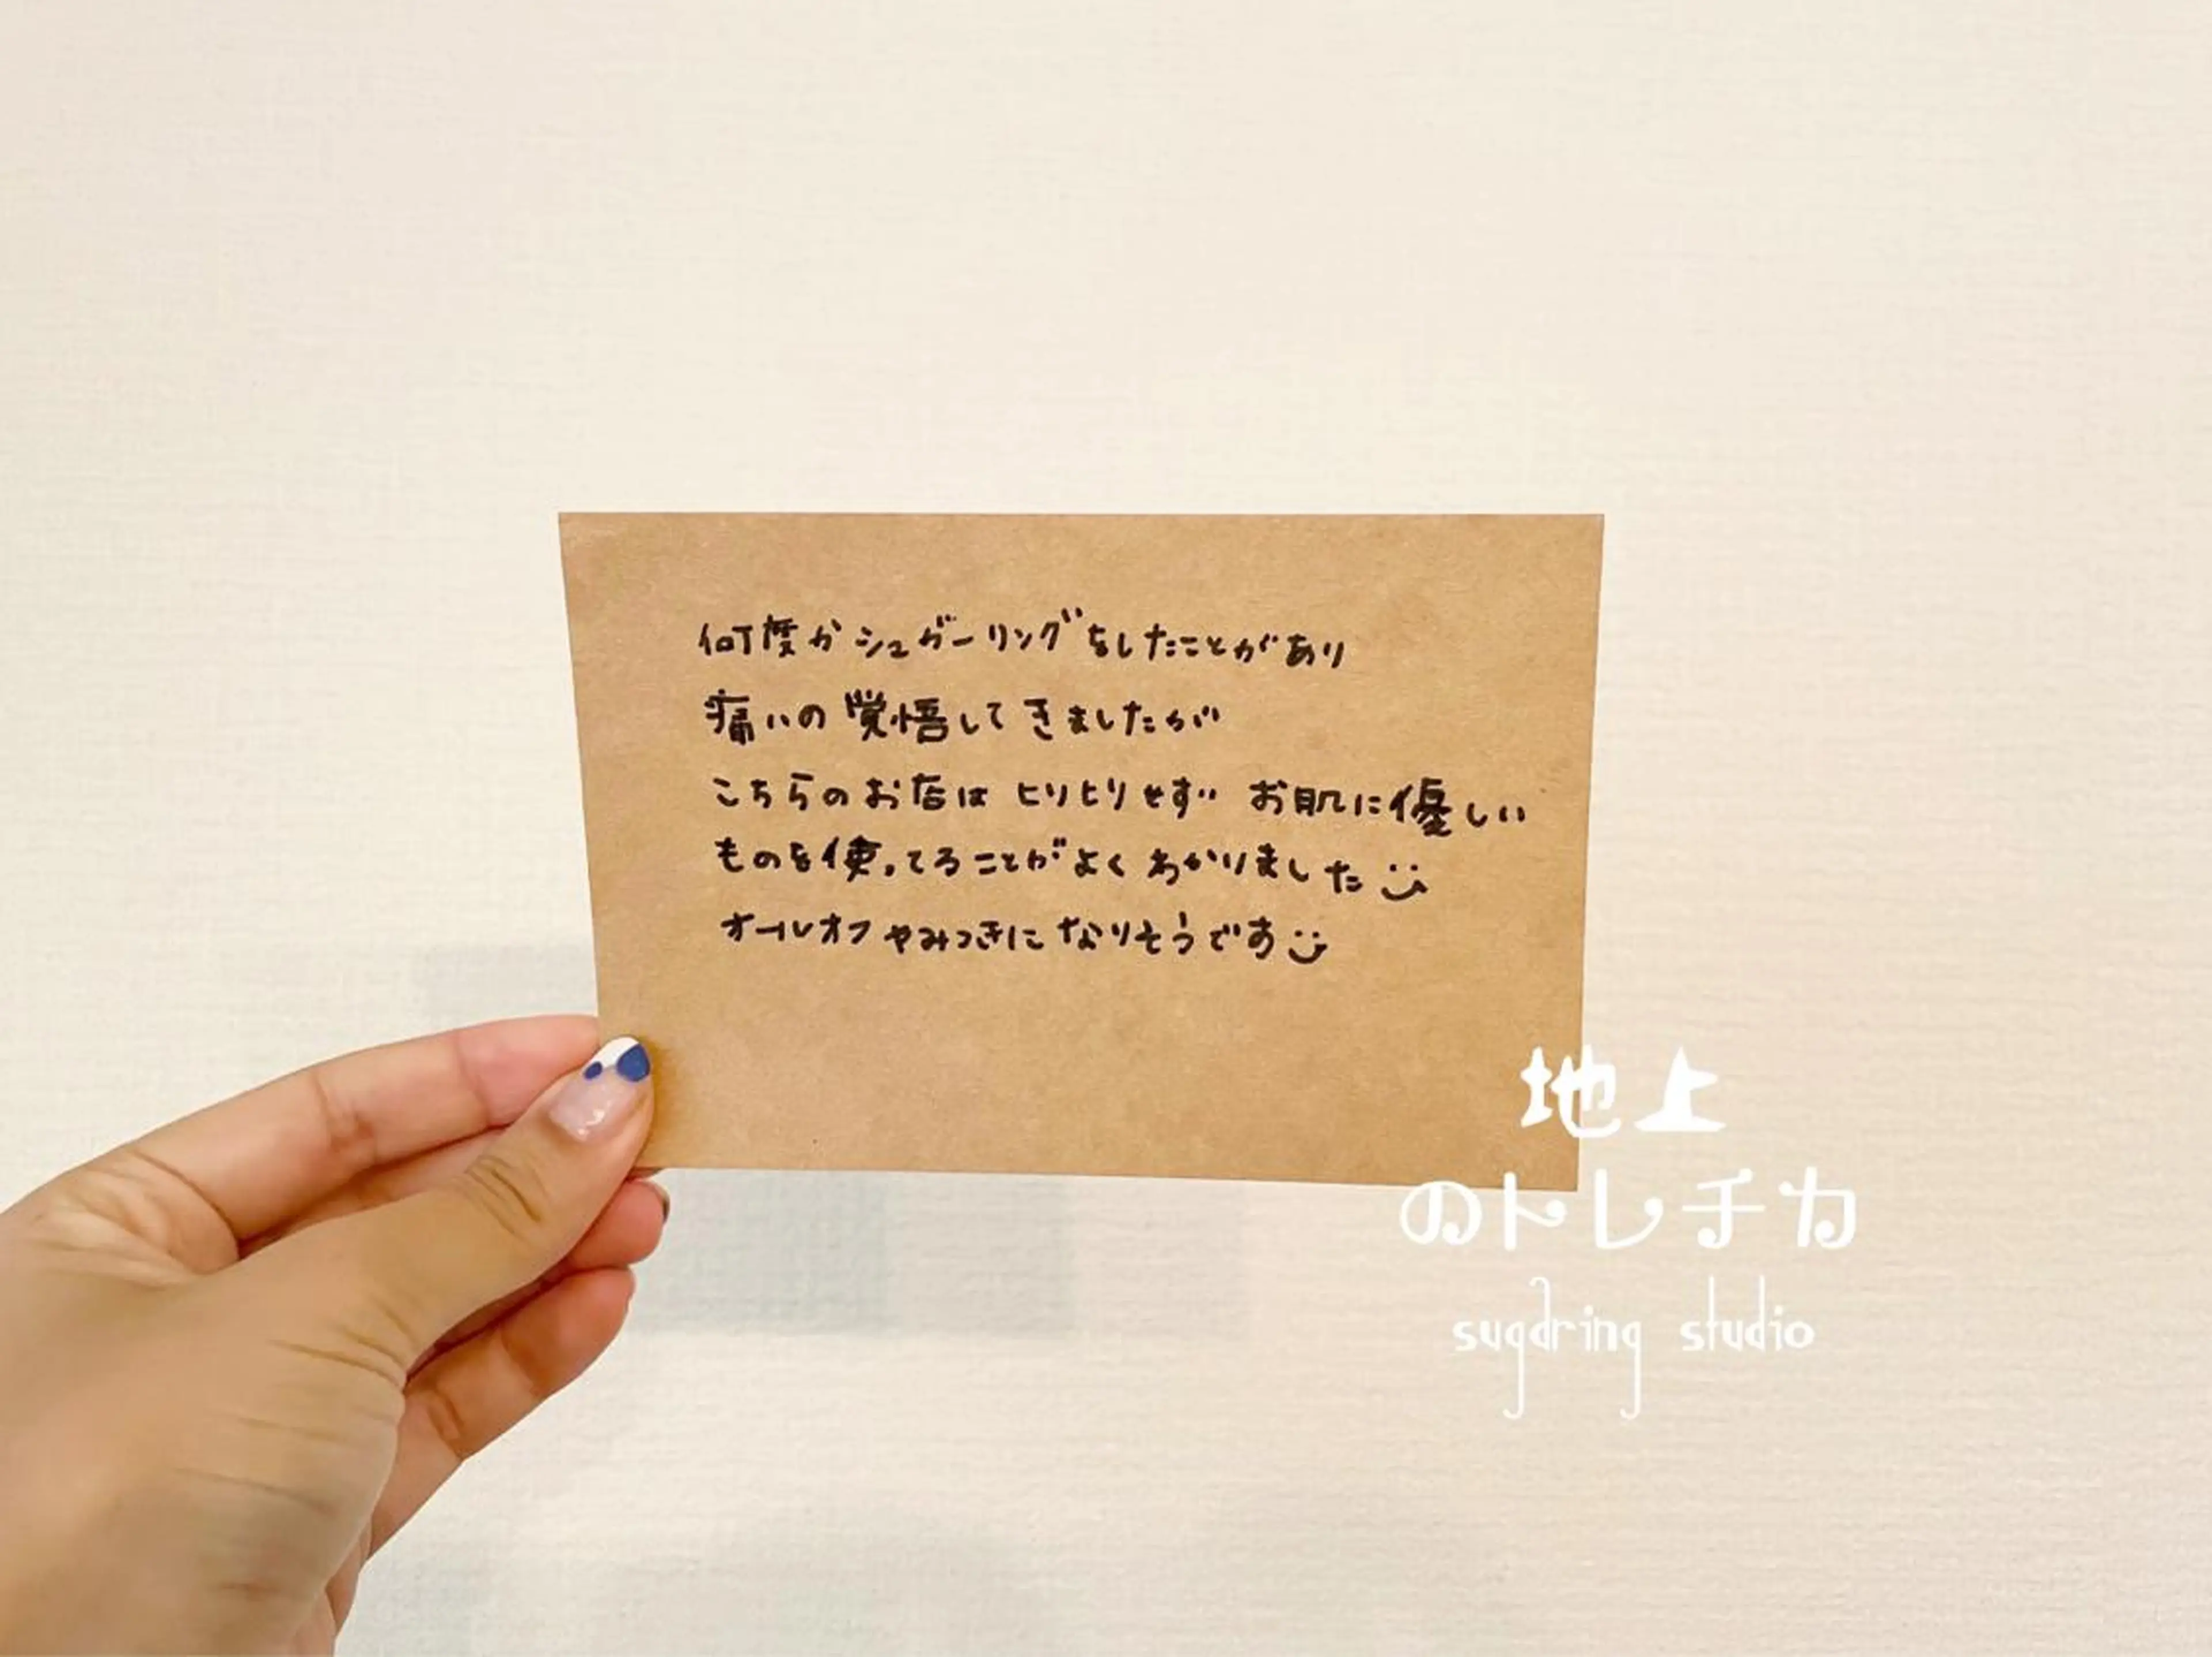 何度かシュガーリングをしたことがあり
痛いの覚悟してきましたが
こちらのお店は ヒリヒリせず お肌に優しい
ものを使ってることがよくわかりました
オールオフやみつきになりそうです
地上
のトレチカ
sugaring studio